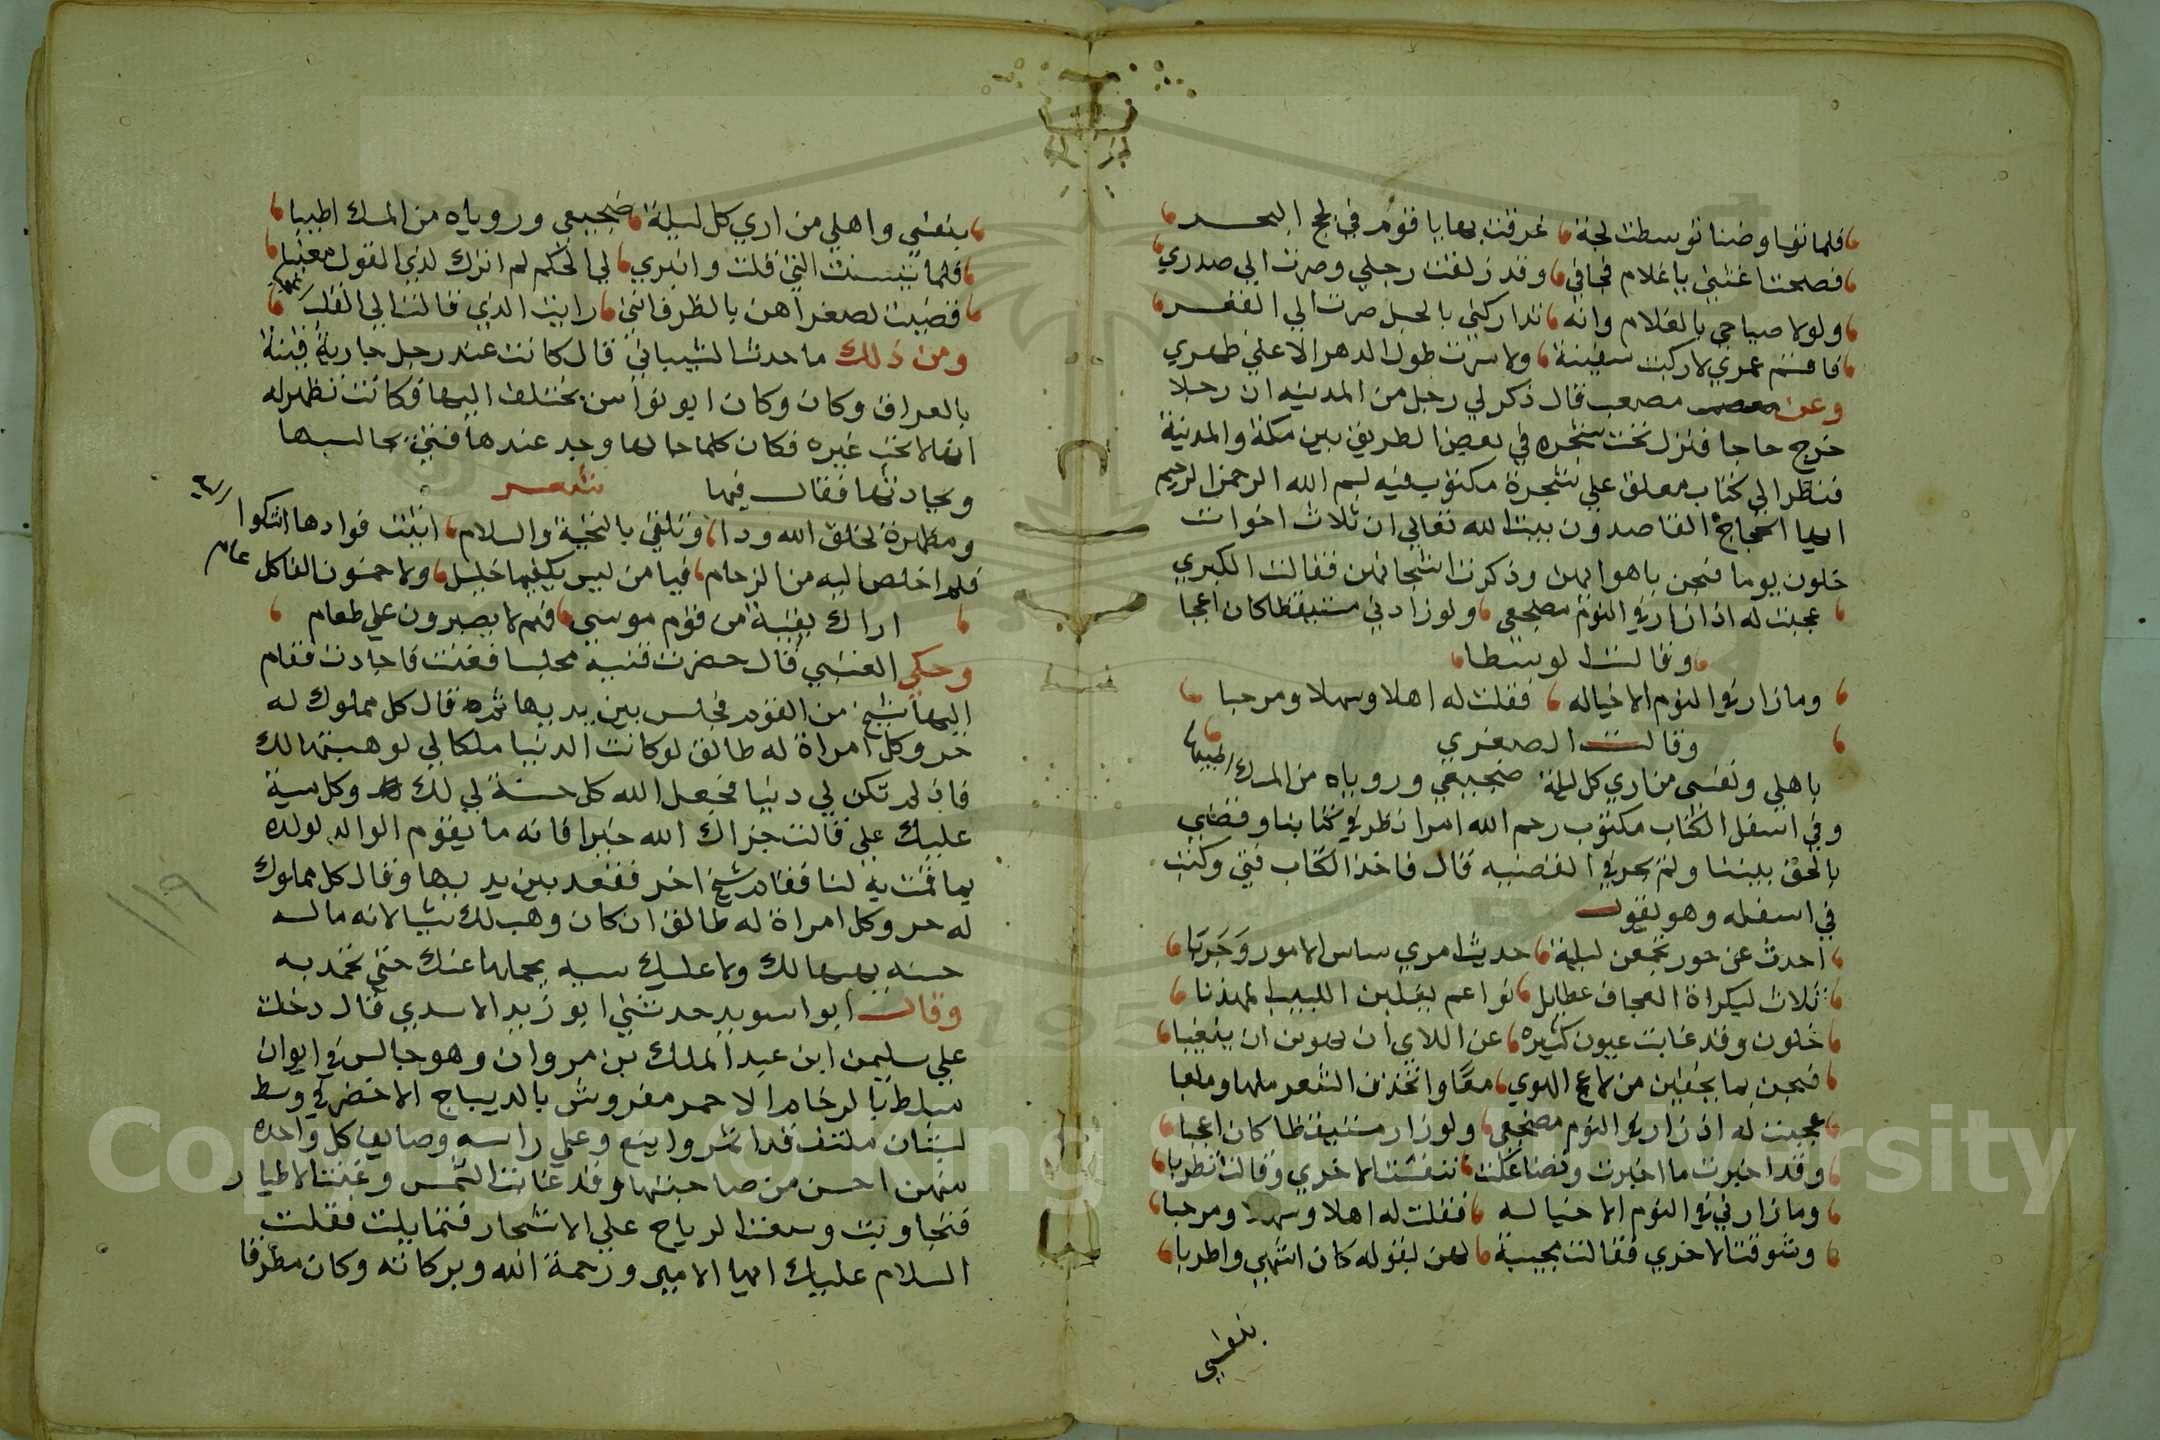 فلما تفاوضنا توسطت لجة غرقت بها يا قوم في لجج البحر
فصحت اغثني يا غلام فجاني وقد زلقت رجلي وصرت الي صدري
ولولا صياحي بالغلام وانه تداركني بالحبل صرت الي القعر
فاقسم عمري لا ركبت سفينة ولا سرت طول الدهر الا علي ظهري
وعن مصعب قال ذكر لي رجل من المدينه ان رجلا
خرج حاجا فنزل تحت شجره في بعض الطريق بين مكة والمدنية
فنظر الي كتاب معلق علي شجرة مكتوب فيه بسم الله الرحمن الرحيم
ايها الحجاج القاصدون بيت الله تعالي ان ثلاث اخوات
خلون يوما فبحن باهوايهن وذكرن اشجانهن فقالت الكبري
عجبت له اذ زار في النوم مضجعي ولو زارني مستيقظا كان اعجبا
وقالت الوسطا
وما زار في النوم الا خياله فقلت له اهلا وسهلا ومرحبا
وقالت الصغري
باهلي ونفسي من اري كل ليلة ضجيعي ورياه من المسك اطيبا
وفي اسفل الكتاب مكتوب رحم الله امرا نظر في كتابنا وقضي
بالحق بيننا ولم يجر في القضيه قال فاخذ الكتاب فتي وكتب
في اسفله وهو يقول
احدث عن حور تجمعن ليلة حديث امري ساس الامور وجربا
ثلاث لبكراة الهجان عطابل نواعم يقتلن اللبيب المهذبا
خلون وقد غابت عيون كثيره عن اللاي ان يهوين ان يتغيبا
فبحن بما يخفين من لاعج الهوي معا واتخذن الشعر ملها وملعبا
عجبت له اذ زار في النوم مضجعي ولو زار مستيقظا كان اعجبا
وقد اخبرت ما اخبرت وتضاحكت تنفست الاخري وقالت تطربا
وما زارني في النوم الا خياله فقلت له اهلا وسهلا ومرحبا
وشوقت الاخري فقالت مجيبة لهن بقوله كان اشهي واطربا
بنفسي
بنفسي واهلي من اري كل ليلة ضجيعي ورياه من المسك اطيبا
فلما تبينت التي قلت وانبري لي الحكم لم اترك لذي القول معتبا
فقضيت لصغراهن بالظرف انني رايت الذي قالت الي القلب
ومن ذلك ما حدث الشيباني قال كانت عند رجل جارية قينة
بالعراق وكان وكان ابو نواس يختلف اليها فكانت تظهر له
انها لا تحب غيره فكان كلما جاها وجد عندها فتي يجالسها
ويحادثها فقال فيها شعر
ومظهرة لخلق الله ودا وتلقي بالتحية والسلام اتيت فوادها اشكوا اليه
فلم اخلص اليه من الزحام فيا من ليس يكفيها خليل ولا خمسون الفا كل عام
اراك بقية من قوم موسي فهم لا يصبرون علي طعام
وحكي العتبي قال حضرت قنية مجلسا فغنت فاجادت فقام
اليها شيخ من القوم فجلس بين يديها ثم قال كل مملوك له
حر وكل امراة له طالق لو كانت الدنيا ملكا لي لوهبتها لك
فاذ لم تكن لي دنيا فجعل الله كل حسنة لي لك وكل سية
عليك علي قالت جزاك الله خيرا فانه ما يقوم الوالد لولده
بما قمت به لنا فقام شيخ اخر فقعد بين يديها وقال كل مملوك
له حر وكل امراة له طالق ان كان وهب لك شيا لانه ماله
حسنه يهبها لك ولا عليك سيه يحملها عنك حتي تحمد به
وقال ابو اسويد حدثني ابو زيد الاسدي قال دخلت
علي سليمن ابن عبد الملك بن مروان وهو جالس في ايوان
مبلط بالرخام الاحمر مفروش بالديباج الاخضر في وسط
بستان ملتف قد اثمر واينع وعلي راسه وصايف كل واحده
منهن احسن من صاحبتها وقد غابت الشمس وغنت الاطيار
فتجاوبت وسفت الرياح علي الاشجار فتمايلت فقلت
السلام عليك ايها الامير ورحمة الله وبركاته وكان مطرقا
١١٩
Copyright © King Saud University